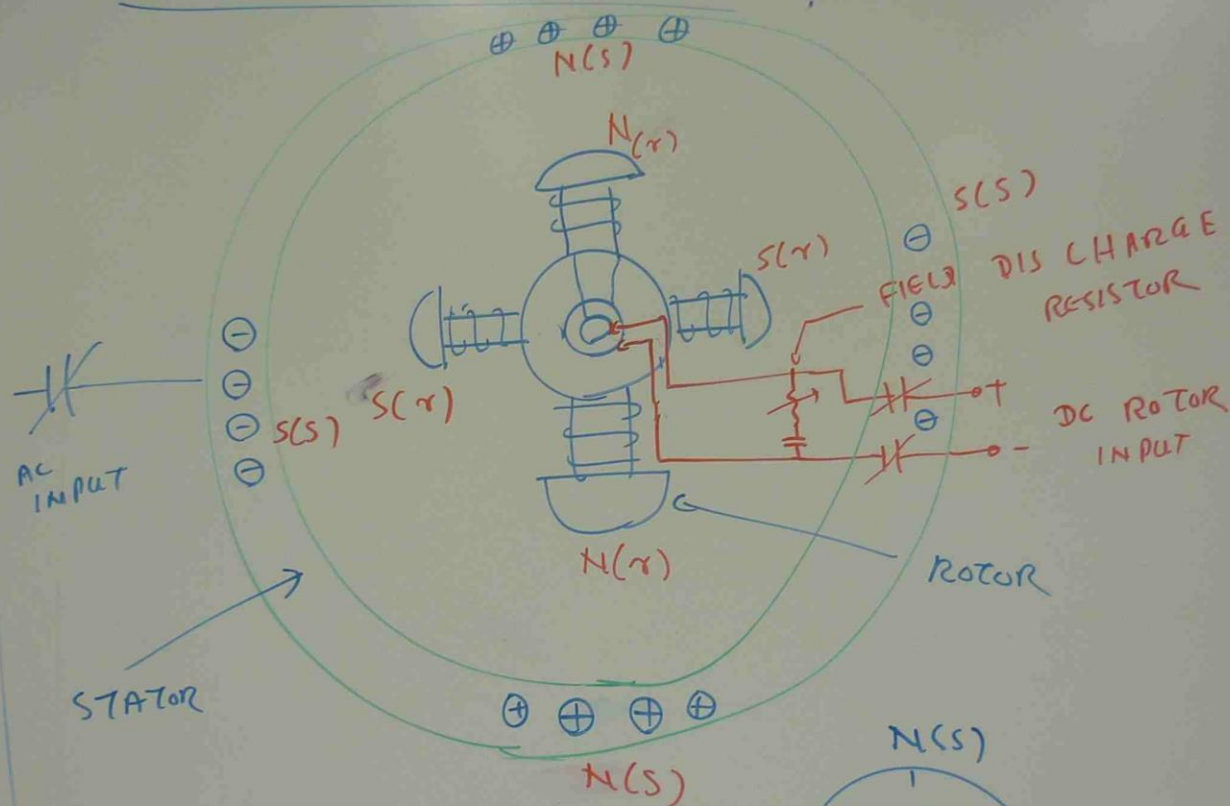 N(S)
N(r)
S(S)
S(r)
FIELD DISCHARGE
RESISTOR
S(r)
S(S)
+
DC ROTOR
INPUT
-
AC
INPUT
N(r)
ROTOR
STATOR
N(S)
N(S)